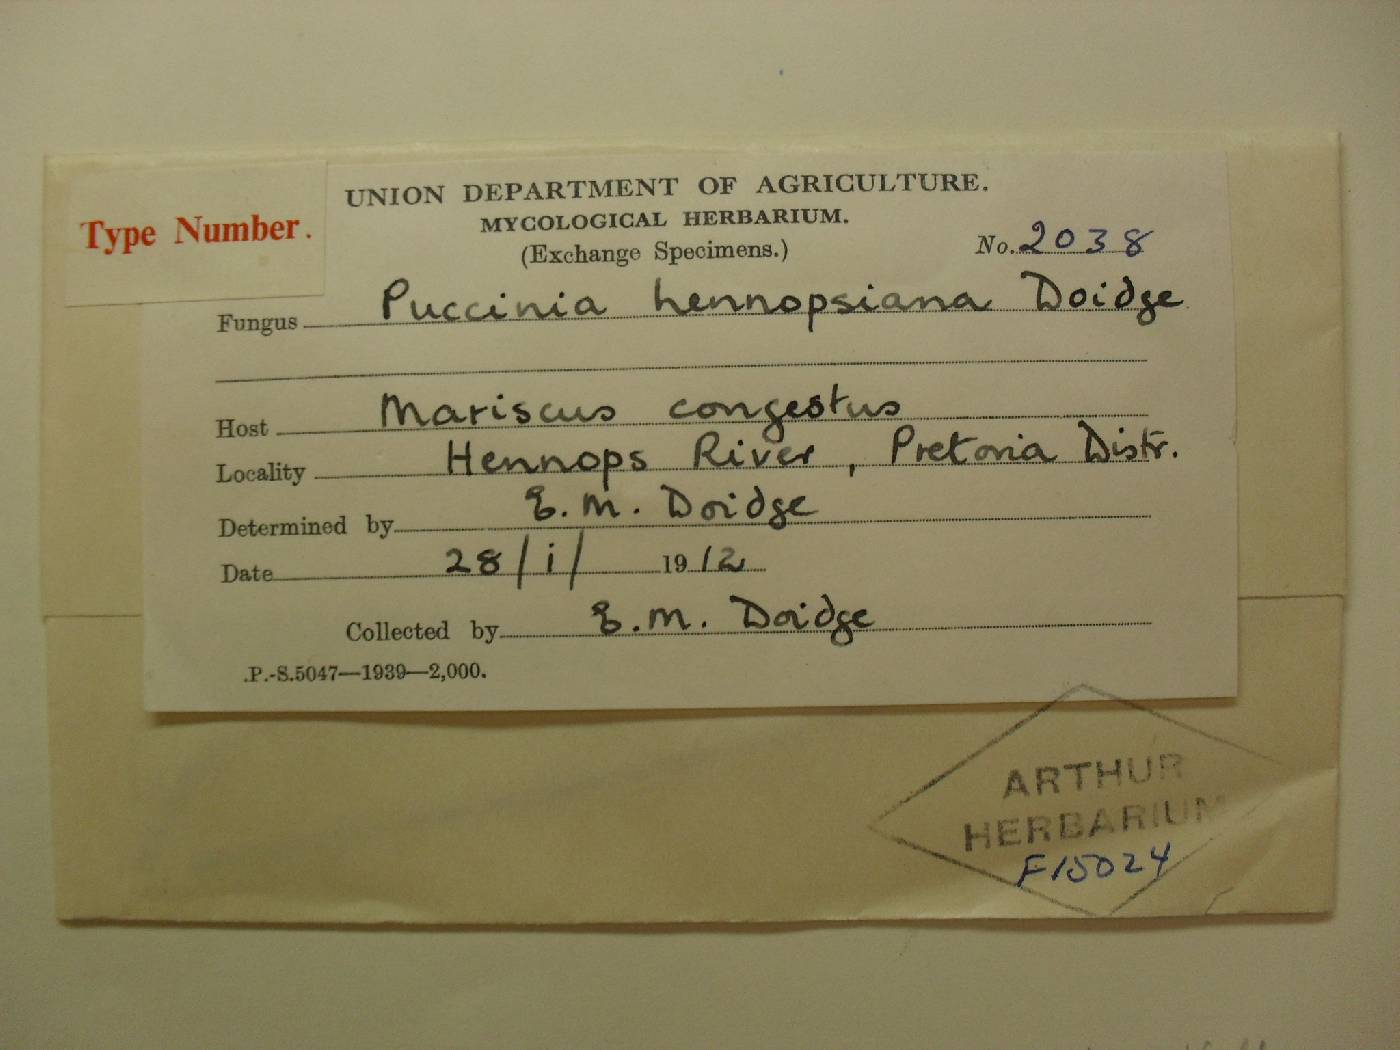 Type Number.
UNION DEPARTMENT OF AGRICULTURE.
MYCOLOGICAL HERBARIUM.
(Exchange Specimens.)
No. 2038
Fungus Puccinia hennopsiana Doidge
Host Mariscus congestus
Locality Hennops River, Pretoria Distr.
Determined by E. M. Doidge
Date 28/i/ 1912
Collected by E. M. Doidge
.P.-S.5047—1939—2,000.
ARTHUR
HERBARIUM
F15024